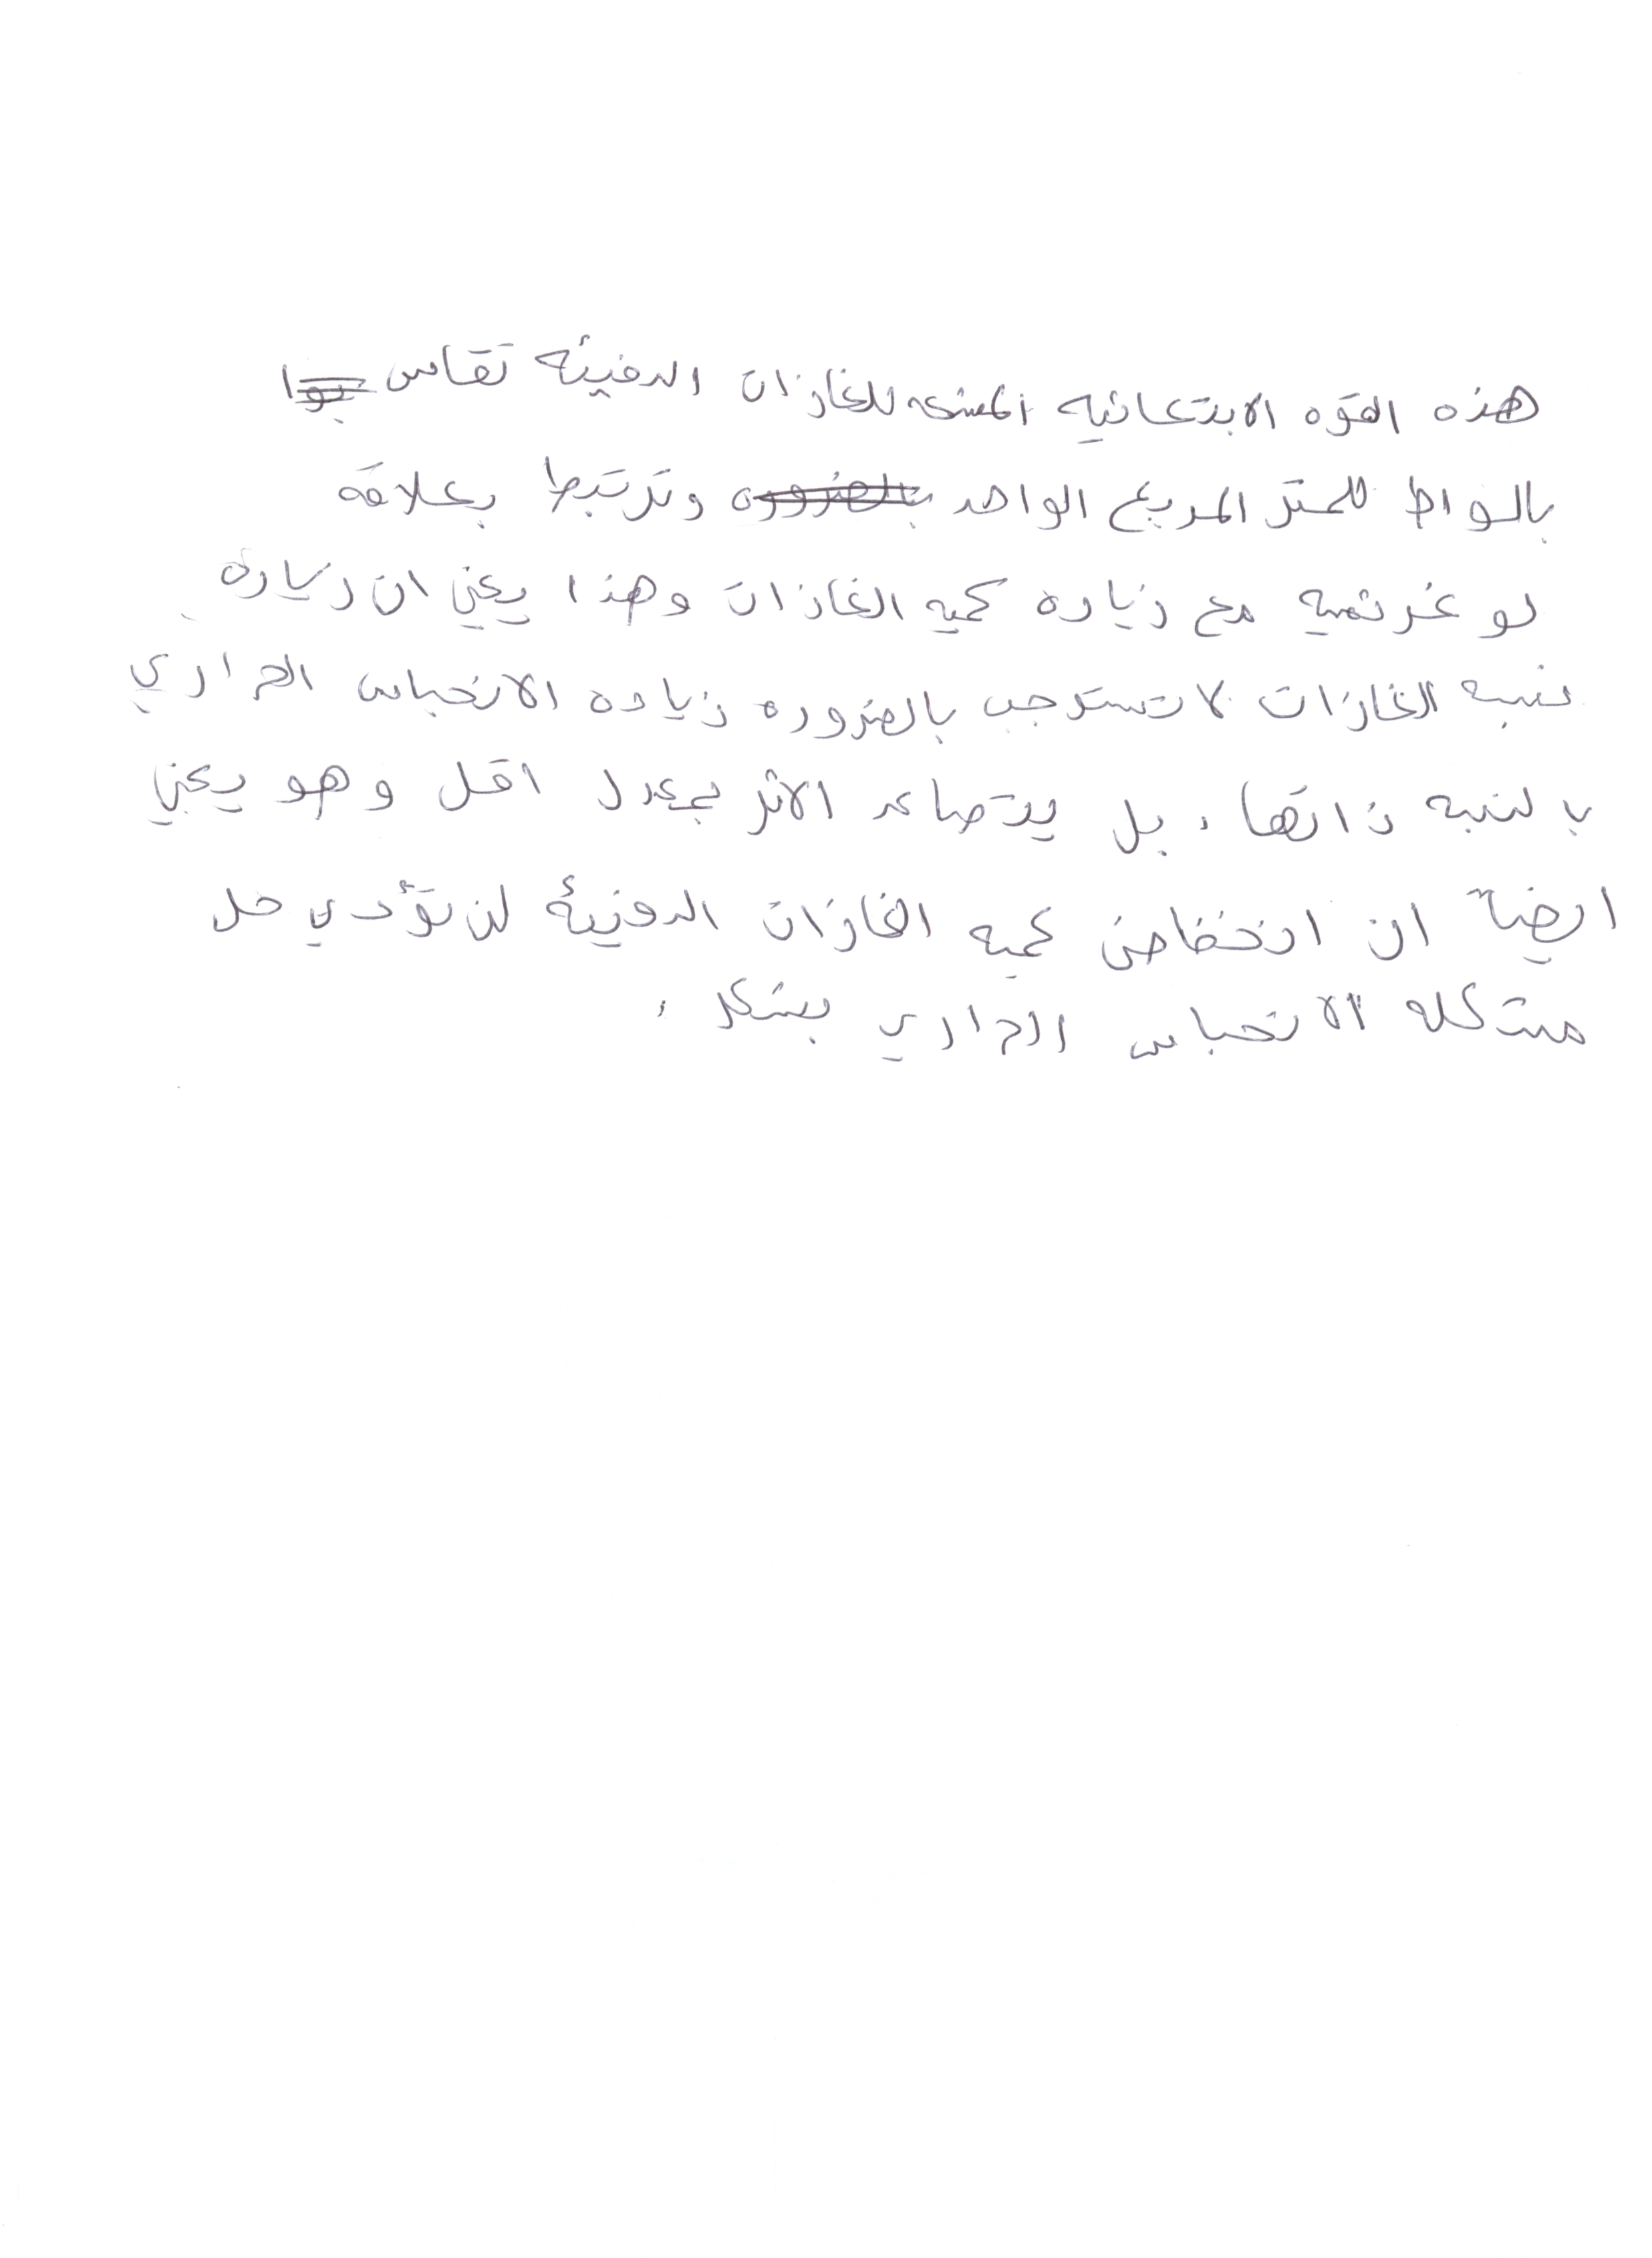 هذه القوه الابتعاثيه المشعه للغازات الدفيئه تقاس
بالواط للمتر المربع الواحد بالضروره وترتبط بعلاقة
لوغرتميه مع زياده كميه الغازات وهذا يعني ان زياده
نسبه الغازات لا تستوجب بالضروره زياده الانحباس الحراري
بالنسبه ذاتها، بل يتصاعد الاثر بمعدل اقل وهو يعني
ايضاً ان انخفاض كميه الغازات الدفيئة لن تؤدي حل
مشكله الانحباس الحراري بشكل،